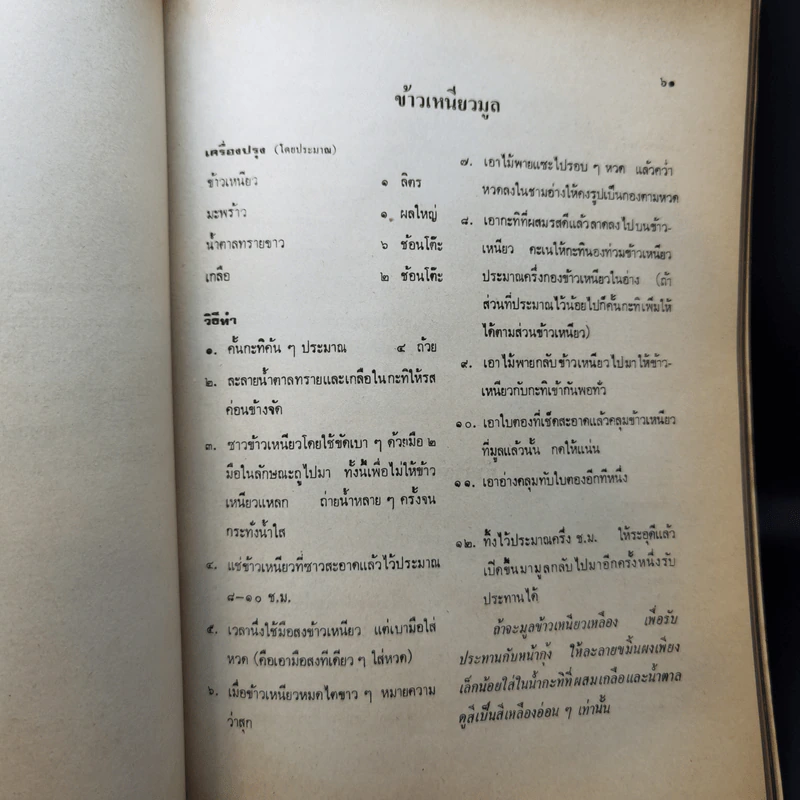 ๖๑
ข้าวเหนียวมูล
เครื่องปรุง (โดยประมาณ)
ข้าวเหนียว ๑ ลิตร
มะพร้าว ๑ ผลใหญ่
น้ำตาลทรายขาว ๖ ช้อนโต๊ะ
เกลือ ๒ ช้อนโต๊ะ
วิธีทำ
๑. คั้นกะทิค้น ๆ ประมาณ ๔ ถ้วย
๒. ละลายน้ำตาลทรายและเกลือในกะทิให้รส
ค่อนข้างจัด
๓. ซาวข้าวเหนียวโดยใช้ขัดเบา ๆ ด้วยมือ ๒
มือในลักษณะถูไปมา ทั้งนี้เพื่อไม่ให้ข้าว
เหนียวแหลก ถ่ายน้ำหลาย ๆ ครั้งจน
กระทั่งน้ำใส
๔. แช่ข้าวเหนียวที่ซาวสะอาดแล้วไว้ประมาณ
๘-๑๐ ช.ม.
๕. เวลานึ่งใช้มือสงข้าวเหนียว แต่เบามือใส่
หวด (คือเอามือสงทีเดียว ๆ ใส่หวด)
๖. เมื่อข้าวเหนียวหมดไตขาว ๆ หมายความ
ว่าสุก
๗. เอาไม้พายแซะไปรอบ ๆ หวด แล้วคว่ำ
หวดลงในชามอ่างให้คงรูปเป็นกองตามหวด
๘. เอากะทิที่ผสมรสดีแล้วลาดลงไปบนข้าว-
เหนียว คะเนให้กะทินองท่วมข้าวเหนียว
ประมาณครึ่งกองข้าวเหนียวในอ่าง (ถ้า
ส่วนที่ประมาณไว้น้อยไปก็คั้นกะทิเพิ่มให้
ได้ตามส่วนข้าวเหนียว)
๙. เอาไม้พายกลับข้าวเหนียวไปมาให้ข้าว-
เหนียวกับกะทิเข้ากันพอทั่ว
๑๐. เอาใบตองที่เช็ดสะอาดแล้วคลุมข้าวเหนียว
ที่มูลแล้วนั้น กดให้แน่น
๑๑. เอาอ่างคลุมทับใบตองอีกทีหนึ่ง
๑๒. ทิ้งไว้ประมาณครึ่ง ช.ม. ให้ระอุดีแล้ว
เปิดขึ้นมามูลกลับไปมาอีกครั้งหนึ่งรับ
ประทานได้
ถ้าจะมูลข้าวเหนียวเหลือง เพื่อรับ
ประทานกับหน้ากุ้ง ให้ละลายขมิ้นผงเพียง
เล็กน้อยใส่ในน้ำกะทิที่ผสมเกลือและน้ำตาล
ดูสีเป็นสีเหลืองอ่อน ๆ เท่านั้น